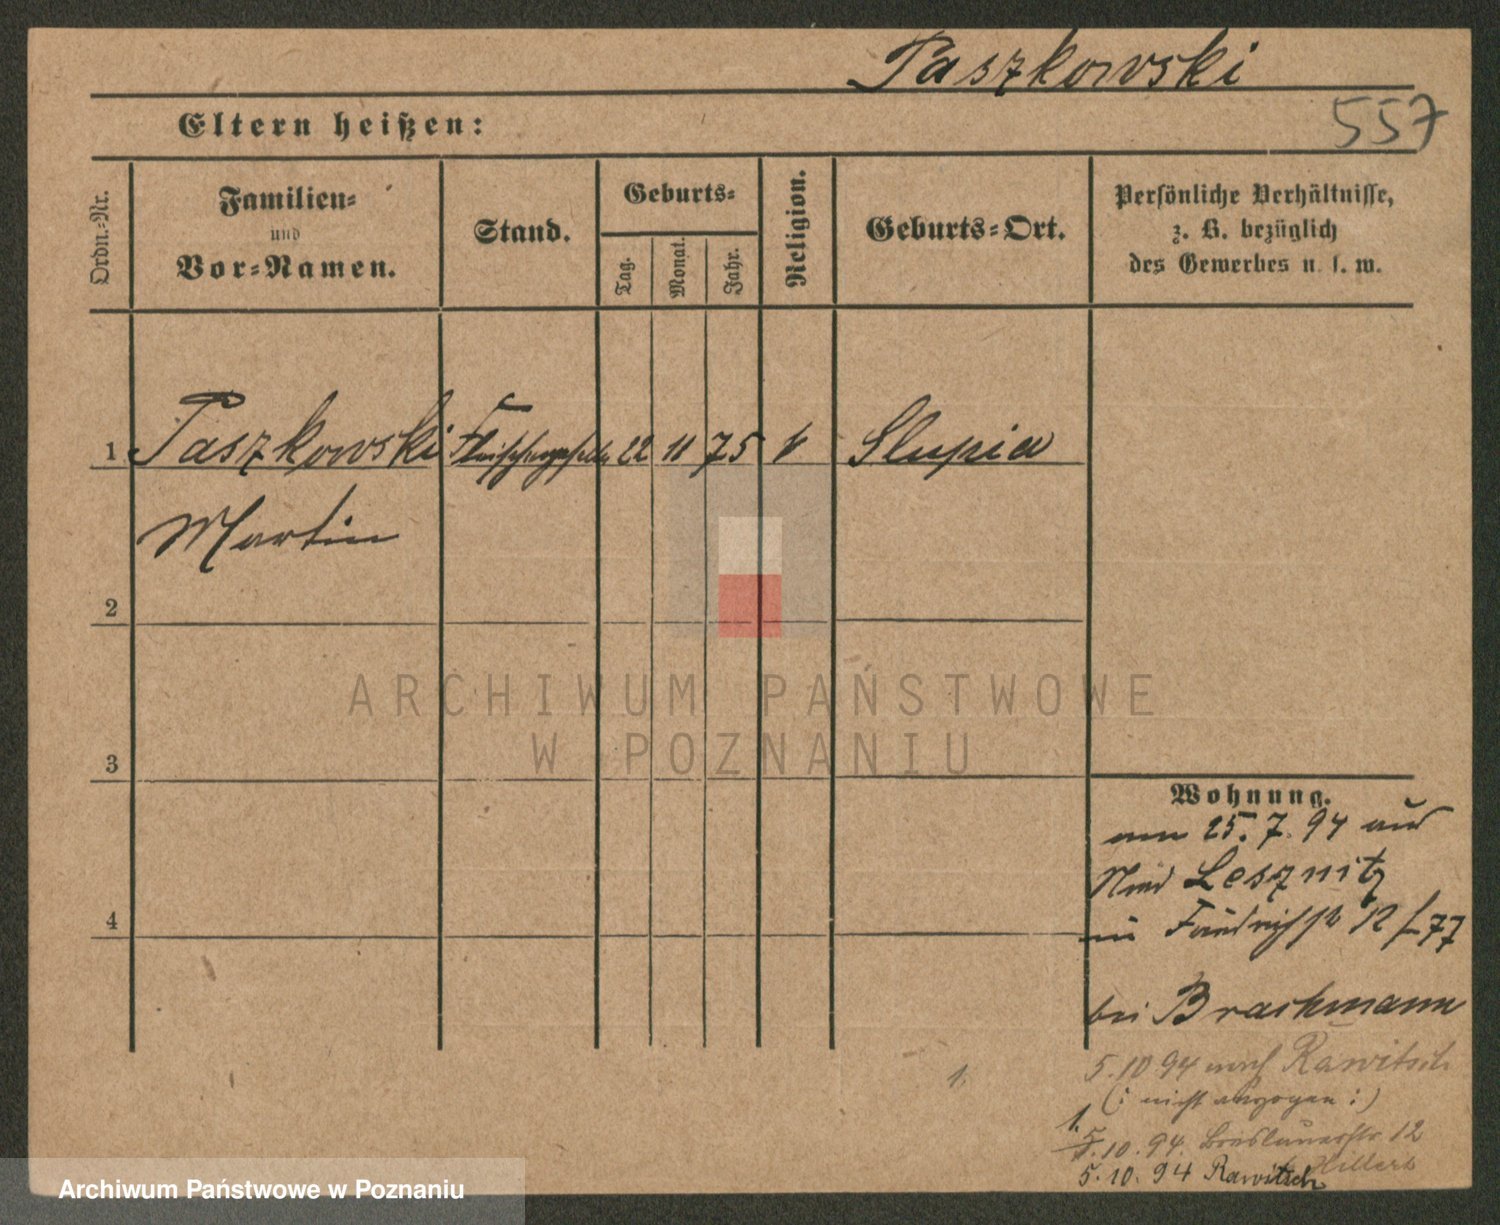 Paszkowski
557
Eltern heißen:
Ordn.-Nr.
Familien-
und
Vor-Namen.
Stand.
Geburts-
Tag.
Monat.
Jahr.
Religion.
Geburts-Ort.
Persönliche Verhältnisse,
z. B. bezüglich
des Gewerbes u. s. w.
1 Paszkowski Fleischergeselle 22 11 75 k Slupia
Martin
2
3
4
ARCHIWUM PAŃSTWOWE
W POZNANIU
Wohnung.
am 25. 7. 94 aus
Lesznitz
in Friedrichstr 12
bei Brachmann
5.10 94 nach Rawitsch
(: nicht abgezogen :)
1.
1.
10. 94. Breslauerstr 12
b Hillert
5. 10. 94 Rawitsch
Archiwum Państwowe w Poznaniu